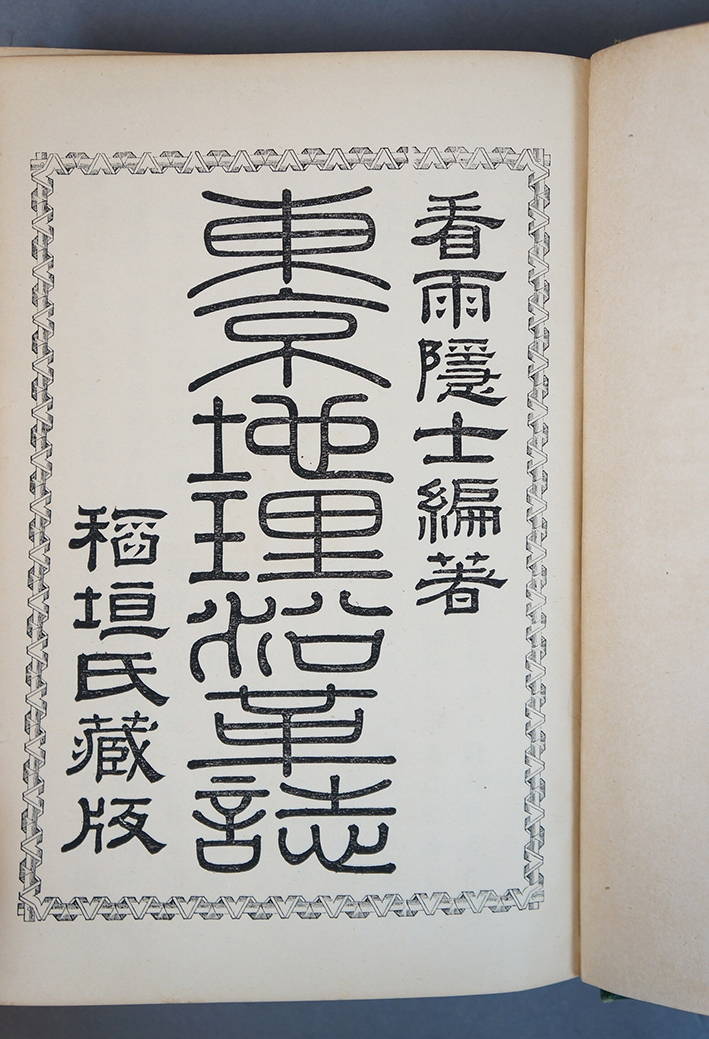 看雨隱士編著
東京地理沿革誌
稻垣氏藏版